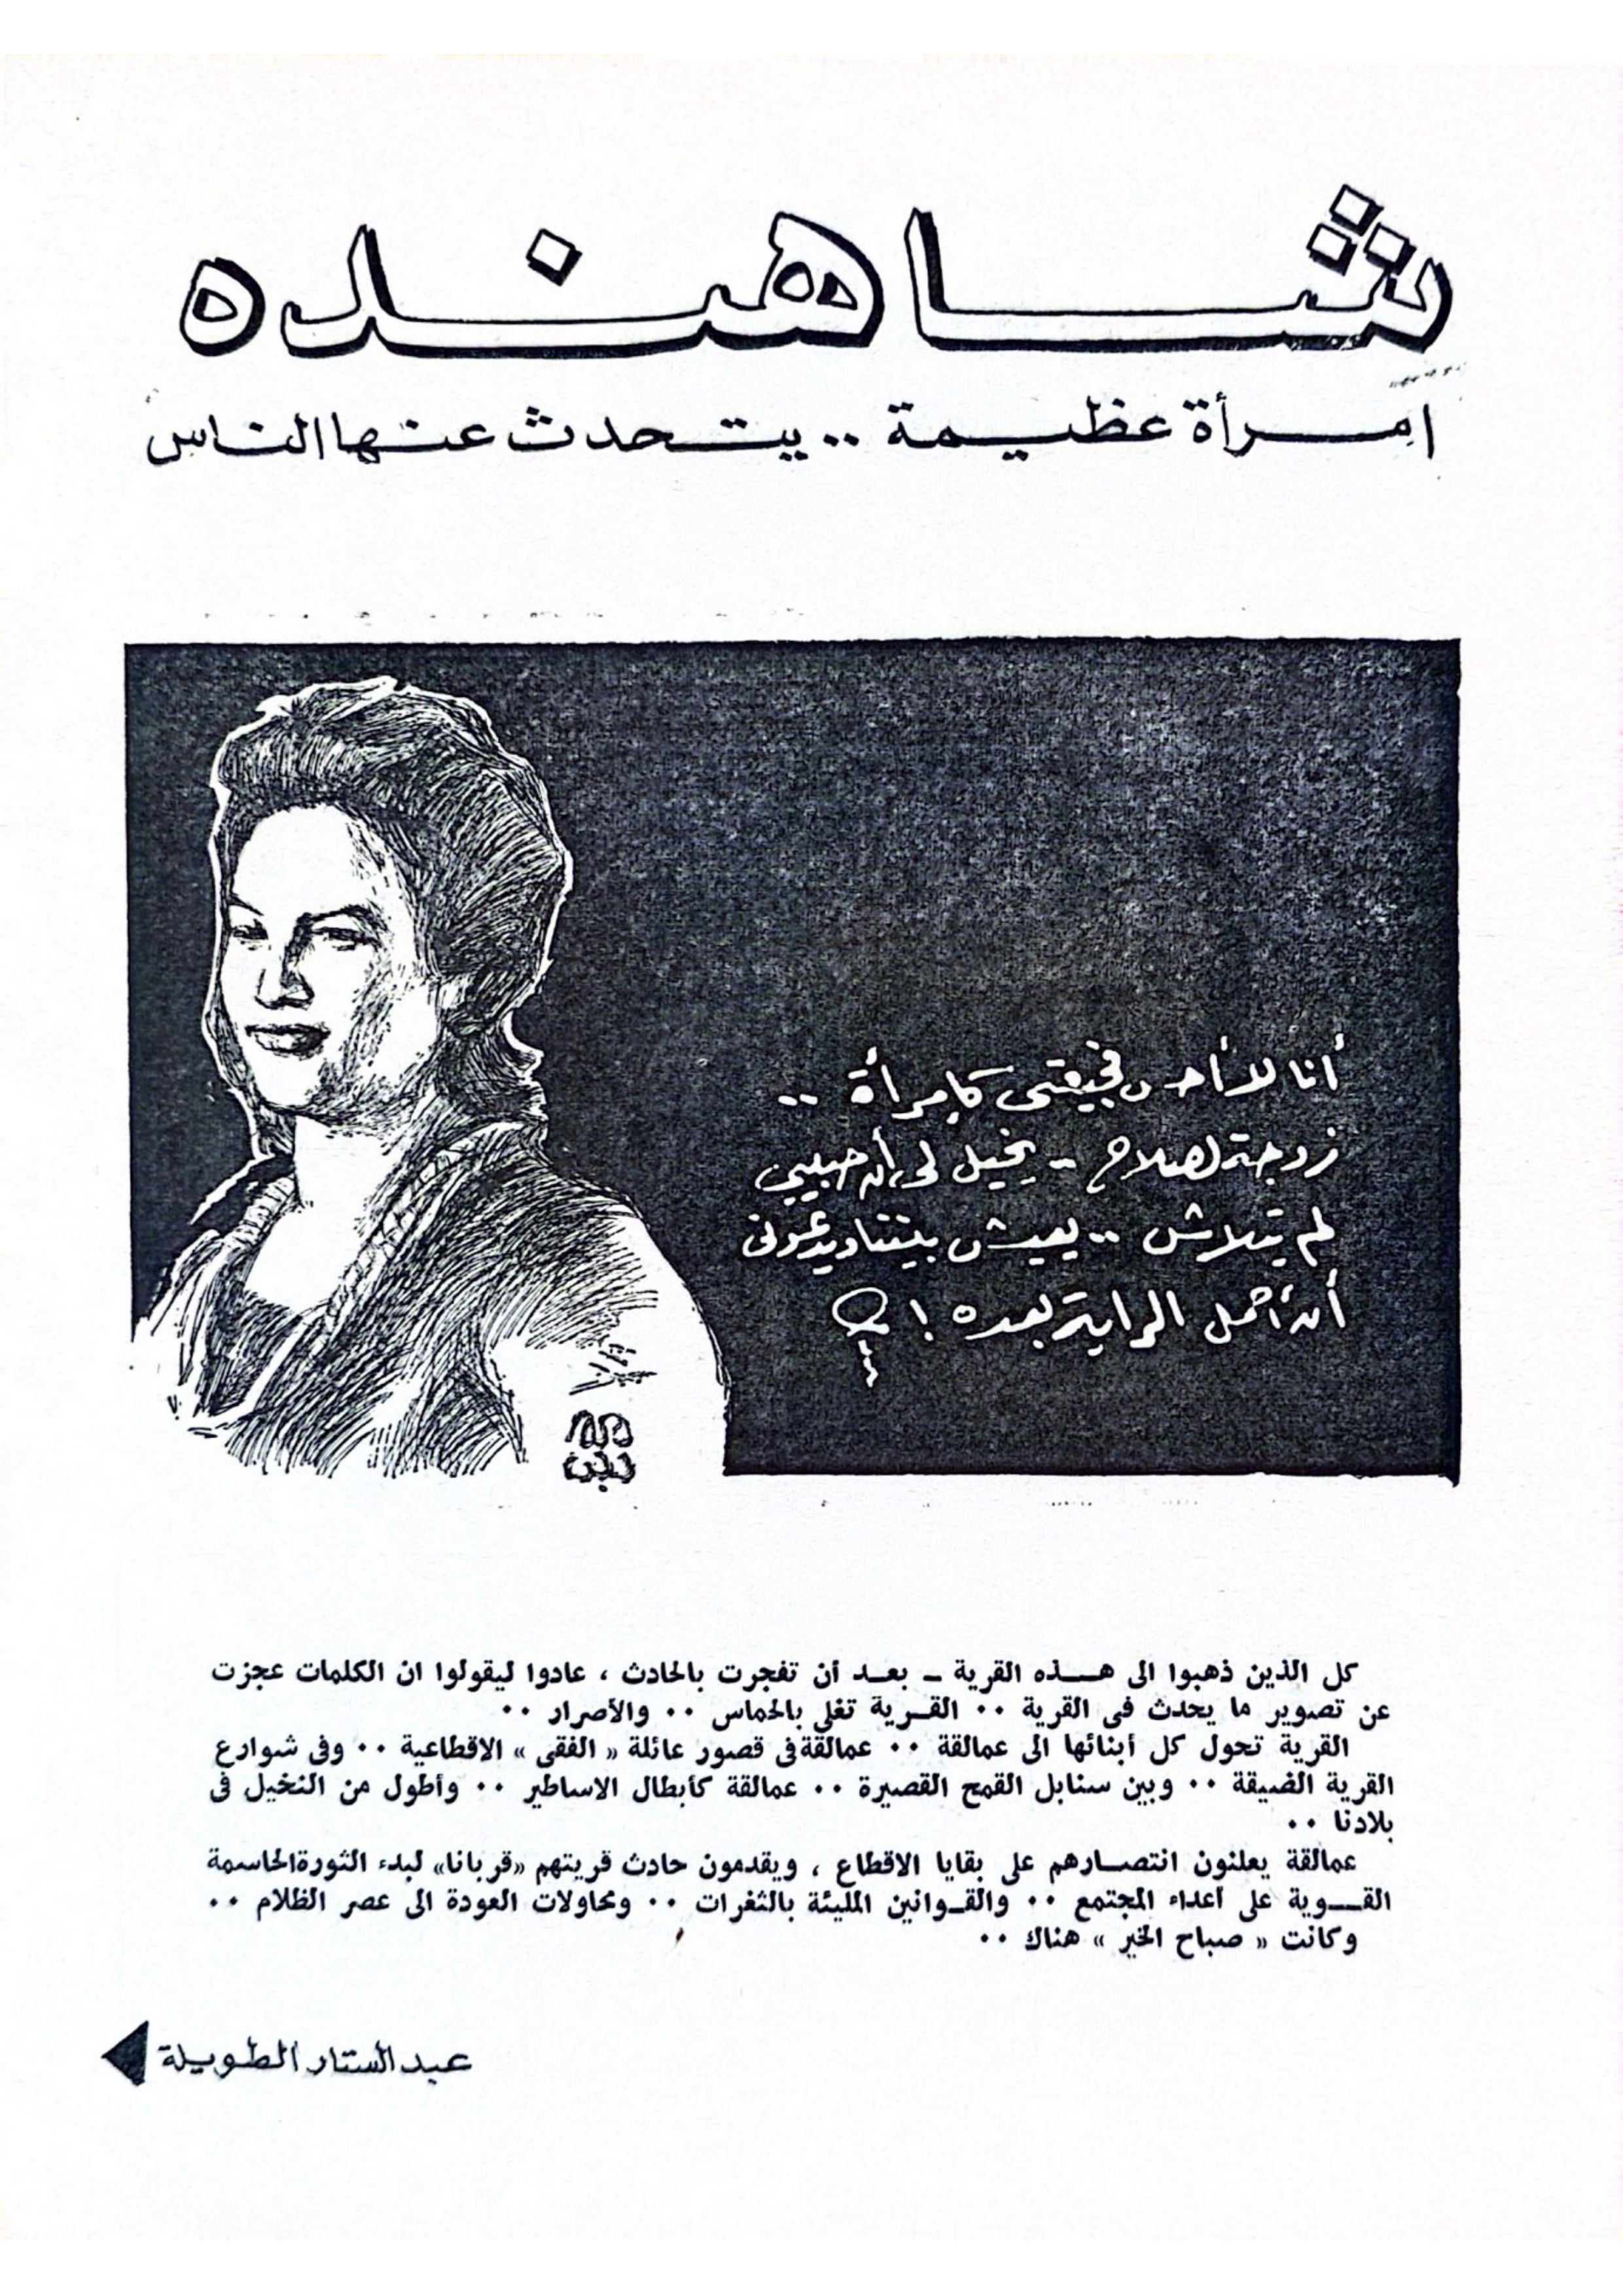 شاهنده
امرأة عظيمة .. يتحدث عنها الناس
أنا لا أحس فجيعتى كامرأة ..
زوجة لصلاح - يخيل لى أن حبيبي
لم يتلاش .. يعيش بيننا ويدعونى
أن أحمل الراية بعده !
كل الذين ذهبوا الى هذه القرية - بعد أن تفجرت بالحادث ، عادوا ليقولوا ان الكلمات عجزت
عن تصوير ما يحدث فى القرية .. القرية تغلى بالحماس .. والأصرار ..
القرية تحول كل أبنائها الى عمالقة .. عمالقة فى قصور عائلة « الفقى » الاقطاعية .. وفى شوارع
القرية الضيقة .. وبين سنابل القمح القصيرة .. عمالقة كأبطال الاساطير .. وأطول من النخيل فى
بلادنا ..
عمالقة يعلنون انتصارهم على بقايا الاقطاع ، ويقدمون حادث قريتهم «قربانا» لبدء الثورة الحاسمة
القوية على أعداء المجتمع .. والقوانين المليئة بالثغرات .. ومحاولات العودة الى عصر الظلام ..
وكانت « صباح الخير » هناك ..
عبد الستار الطويلة